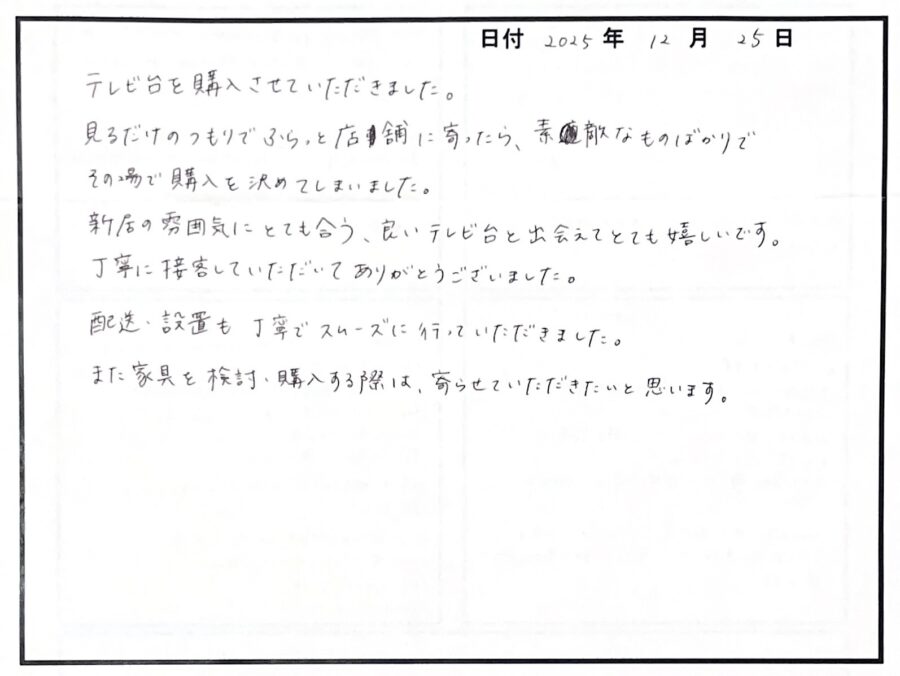 日付 2025年 12月 25日
テレビ台を購入させていただきました。
見るだけのつもりでふらっと店舗に寄ったら、素敵なものばかりで
その場で購入を決めてしまいました。
新居の雰囲気にとても合う、良いテレビ台と出会えてとても嬉しいです。
丁寧に接客していただいてありがとうございました。
配送・設置も丁寧でスムーズに行っていただきました。
また家具を検討・購入する際は、寄らせていただきたいと思います。